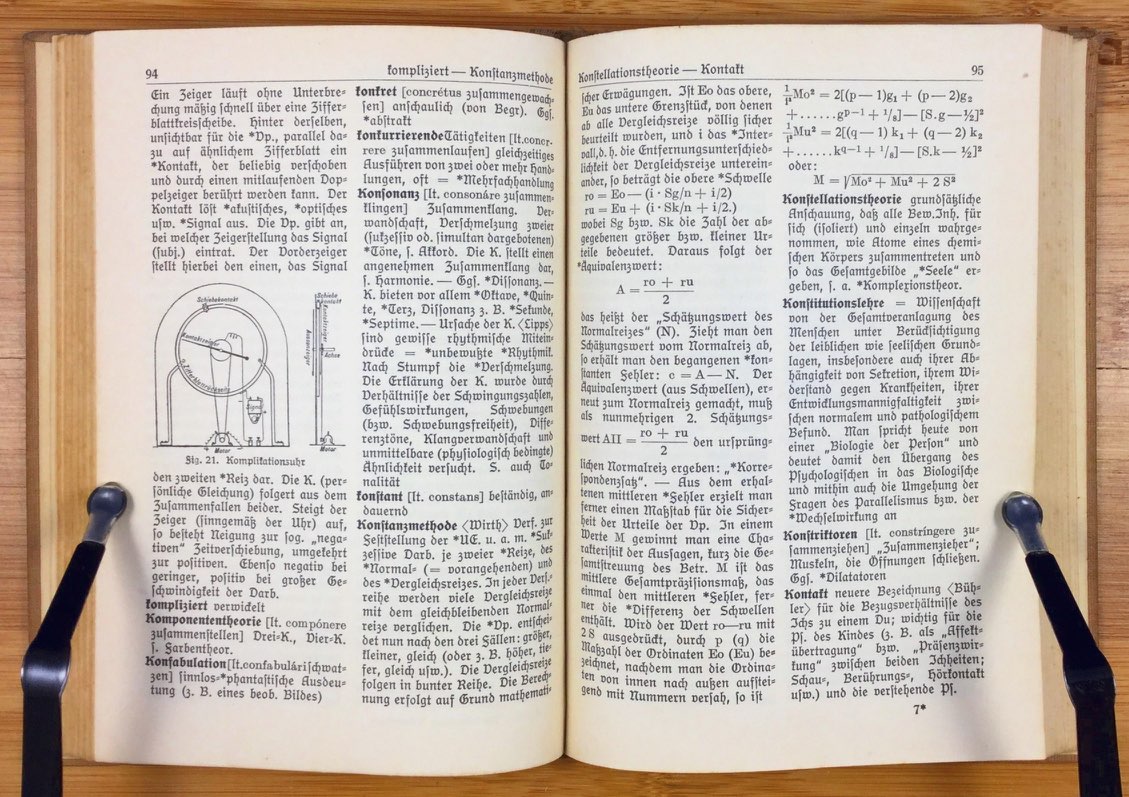 94
kompliziert — Konstanzmethode
Ein Zeiger läuft ohne Unterbre=
chung mäßig schnell über eine Ziffer=
blattkreisscheibe. Hinter derselben,
unsichtbar für die *Vp., parallel da=
zu auf ähnlichem Zifferblatt ein
*Kontakt, der beliebig verschoben
und durch einen mitlaufenden Dop=
pelzeiger berührt werden kann. Der
Kontakt löst *akustisches, *optisches
usw. *Signal aus. Die Vp. gibt an,
bei welcher Zeigerstellung das Signal
(subj.) eintrat. Der Vorderzeiger
stellt hierbei den einen, das Signal
Schiebekontakt
Kontaktzeiger
Zifferblattrückseite
Signal
Motor
Schiebe
kontakt
Kontaktzeiger
Aussenzeiger
Achse
Motor
Fig. 21. Komplikationsuhr
den zweiten *Reiz dar. Die K. (per=
sönliche Gleichung) folgert aus dem
Zusammenfallen beider. Steigt der
Zeiger (sinngemäß der Uhr) auf,
so besteht Neigung zur sog. „nega=
tiven" Zeitverschiebung, umgekehrt
zur positiven. Ebenso negativ bei
geringer, positiv bei großer Ge=
schwindigkeit der Darb.
kompliziert verwickelt
Komponententheorie [lt. compónere
zusammenstellen] Drei=K., Vier=K.
s. Farbentheor.
Konfabulation [lt. confabulári schwat=
zen] sinnlos=*phantastische Ausdeu=
tung (z. B. eines beob. Bildes)
konkret [concrétus zusammengewach=
sen] anschaulich (von Begr). Ggs.
*abstrakt
konkurrierende Tätigkeiten [lt. concr-
rere zusammenlaufen] gleichzeitiges
Ausführen von zwei oder mehr Hand=
lungen, oft = *Mehrfachhandlung
Konsonanz [lt. consonáre zusammen=
klingen] Zusammenklang. Ver=
wandschaft, Verschmelzung zweier
(sukzessiv od. simultan dargebotenen)
*Töne, s. Akkord. Die K. stellt einen
angenehmen Zusammenklang dar,
s. Harmonie. — Ggs. *Dissonanz. —
K. bieten vor allem *Oktave, *Quin=
te, *Terz, Dissonanz z. B. *Sekunde,
*Septime. — Ursache der K. ⟨Lipps⟩
sind gewisse rhythmische Mitein=
drücke = *unbewußte *Rhythmik.
Nach Stumpf die *Verschmelzung.
Die Erklärung der K. wurde durch
Verhältnisse der Schwingungszahlen,
Gefühlswirkungen, Schwebungen
(bzw. Schwebungsfreiheit), Diffe=
renztöne, Klangverwandschaft und
unmittelbare (physiologisch bedingte)
Ähnlichkeit versucht. S. auch To=
nalität
konstant [lt. constans] beständig, an=
dauernd
Konstanzmethode ⟨Wirth⟩ Verf. zur
Feststellung der *UE. u. a. m. *Suk=
zessive Darb. je zweier *Reize, des
*Normal= (= vorangehenden) und
des *Vergleichsreizes. In jeder Vers.=
reihe werden viele Vergleichsreize
mit dem gleichbleibenden Normal=
reize verglichen. Die *Vp. entschei=
det nun nach den drei Fällen: größer,
kleiner, gleich (oder z. B. höher, tie=
fer, gleich usw.). Die Vergleichsreize
folgen in bunter Reihe. Die Berech=
nung erfolgt auf Grund mathemati=
Konstellationstheorie — Kontakt
95
scher Erwägungen. Ist Eo das obere,
Eu das untere Grenzstück, von denen
ab alle Vergleichsreize völlig sicher
beurteilt wurden, und i das *Inter=
vall, d. h. die Entfernungsunterschied=
lichkeit der Vergleichsreize unterein=
ander, so beträgt die obere *Schwelle
ro = Eo — (i · Sg/n + i/2)
ru = Eu + (i · Sk/n + i/2.)
wobei Sg bzw. Sk die Zahl der ab=
gegebenen größer bzw. kleiner Ur=
teile bedeutet. Daraus folgt der
*Äquivalenzwert:
A = (ro + ru)/2
das heißt der „Schätzungswert des
Normalreizes" (N). Zieht man den
Schätzungswert vom Normalreiz ab,
so erhält man den begangenen *kon=
stanten Fehler: c = A — N. Der
Äquivalenzwert (aus Schwellen), er=
neut zum Normalreiz gemacht, muß
als nunmehrigen 2. Schätzungs=
wert AII = (ro + ru)/2 den ursprüng=
lichen Normalreiz ergeben: „*Korre=
spondenzsatz". — Aus dem erhal=
tenen mittleren *Fehler erzielt man
ferner einen Maßstab für die Sicher=
heit der Urteile der Vp. In einem
Werte M gewinnt man eine Cha=
rakteristik der Aussagen, kurz die Ge=
samtstreuung des Betr. M ist das
mittlere Gesamtpräzisionsmaß, das
einmal den mittleren *Fehler, fer=
ner die *Differenz der Schwellen
enthält. Wird der Wert ro—ru mit
2 S ausgedrückt, durch p (q) die
Maßzahl der Ordinaten Eo (Eu) be=
zeichnet, nachdem man die Ordina=
ten von innen nach außen aufstei=
gend mit Nummern versah, so ist
Mo² = 2[(p — 1)g₁ + (p — 2)g₂
+ ...... gp−1 + ¹/₈] — [S.g — ½]²
Mu² = 2[(q — 1) k₁ + (q — 2) k₂
+ ...... kq−1 + ¹/₈] — [S.k — ½]²
oder:
M = √Mo² + Mu² + 2 S²
Konstellationstheorie grundsätzliche
Anschauung, daß alle Bew.Inh. für
sich (isoliert) und einzeln wahrge=
nommen, wie Atome eines chemi=
schen Körpers zusammentreten und
so das Gesamtgebilde „*Seele" er=
geben, s. a. *Komplexionstheor.
Konstitutionslehre = Wissenschaft
von der Gesamtveranlagung des
Menschen unter Berücksichtigung
der leiblichen wie seelischen Grund=
lagen, insbesondere auch ihrer Ab=
hängigkeit von Sekretion, ihrem Wi=
derstand gegen Krankheiten, ihrer
Entwicklungsmannigfaltigkeit zwi=
schen normalem und pathologischem
Befund. Man spricht heute von
einer „Biologie der Person" und
deutet damit den Übergang des
Psychologischen in das Biologische
und mithin auch die Umgehung der
Fragen des Parallelismus bzw. der
*Wechselwirkung an
Konstriktoren [lt. constringere zu=
sammenziehen] „Zusammenzieher";
Muskeln, die Öffnungen schließen.
Ggs. *Dilatatoren
Kontakt neuere Bezeichnung ⟨Büh=
ler⟩ für die Bezugsverhältnisse des
Ichs zu einem Du; wichtig für die
Ps. des Kindes (z. B. als „Affekt=
übertragung" bzw. „Präsenzwir=
kung" zwischen beiden Ichheiten;
Schau=, Berührungs=, Hörkontakt
usw.) und die verstehende Ps.
7*